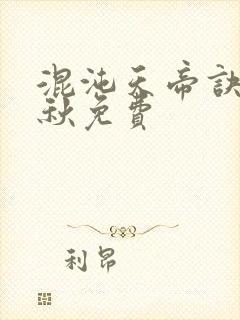 混沌天帝訣
秋免費
利昂